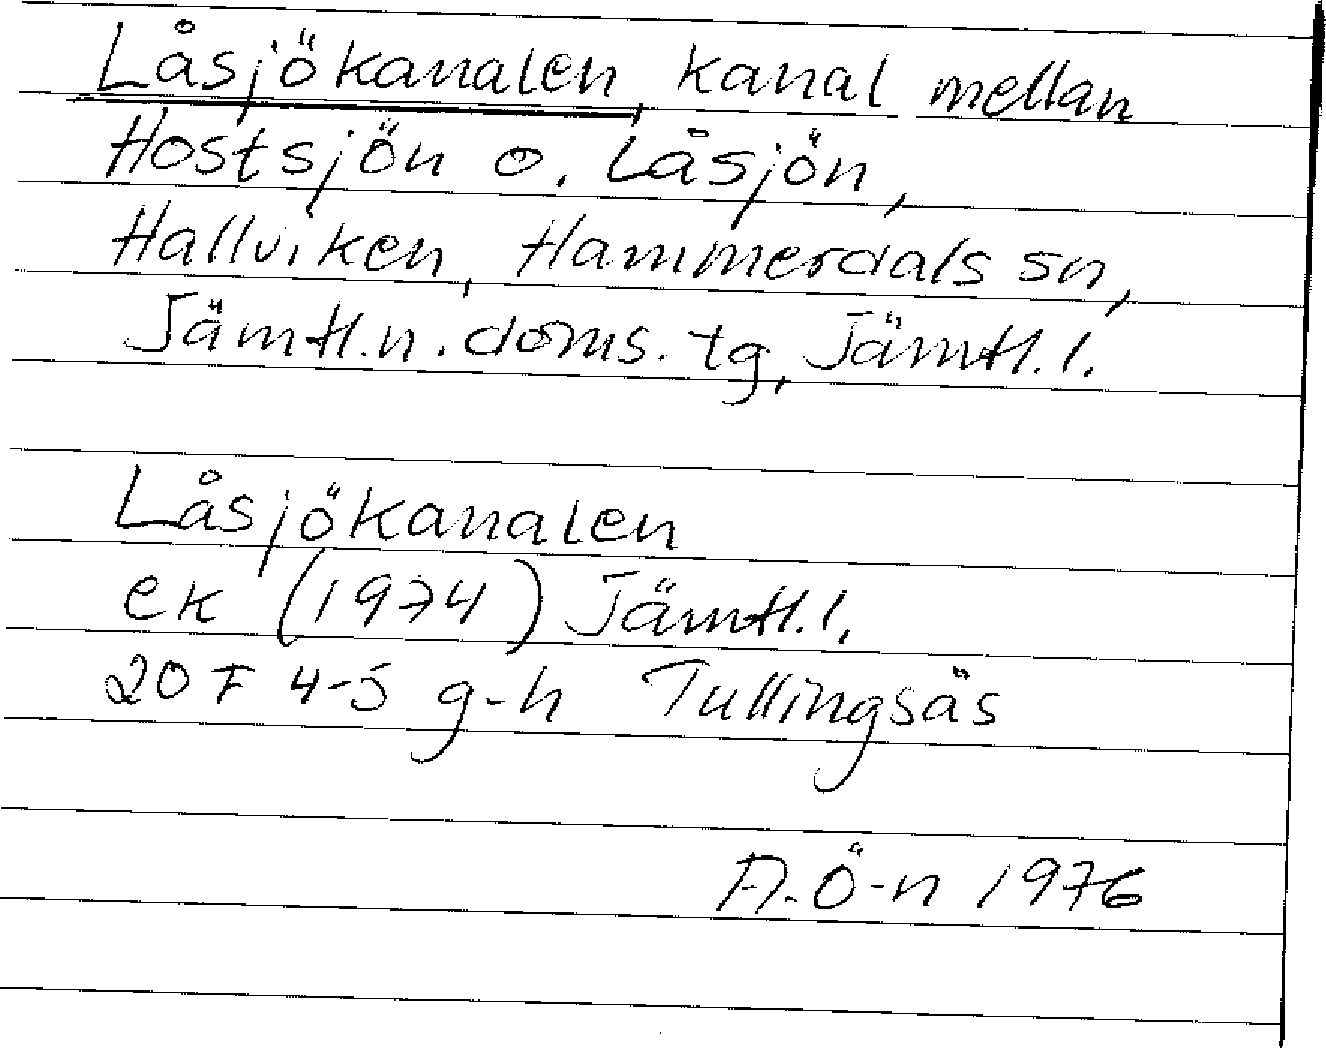 Låsjökanalen, kanal mellan
Hostsjön o. Låsjön,
Hallviken, Hammerdals sn,
Jämtl.n. doms. tg, Jämtl. l.
Låsjökanalen
ek (1974) Jämtl. l.
20 F 4-5 g-h Tullingsås
A. Ö-n 1976